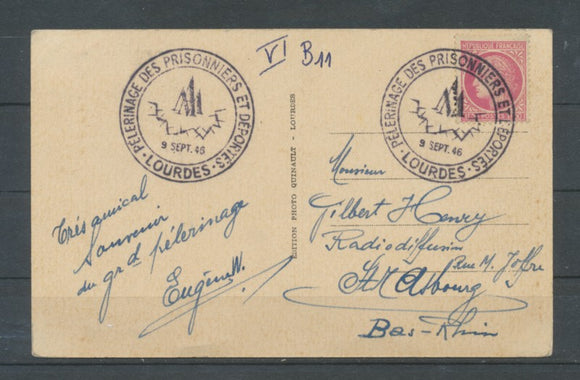 VI B11
PÈLERINAGE DES PRISONNIERS ET DÉPORTÉS
9 SEPT. 46
· LOURDES ·
PÈLERINAGE DES PRISONNIERS ET DÉPORTÉS
9 SEPT. 46
· LOURDES ·
RÉPUBLIQUE FRANÇAISE
ÉDITION PHOTO QUINAULT - LOURDES
Très amical
Souvenir
du grd pélerinage
Eugène W.
Monsieur
Gilbert Henry
Radiodiffusion
Rue M. Joffre
Strasbourg
Bas-Rhin